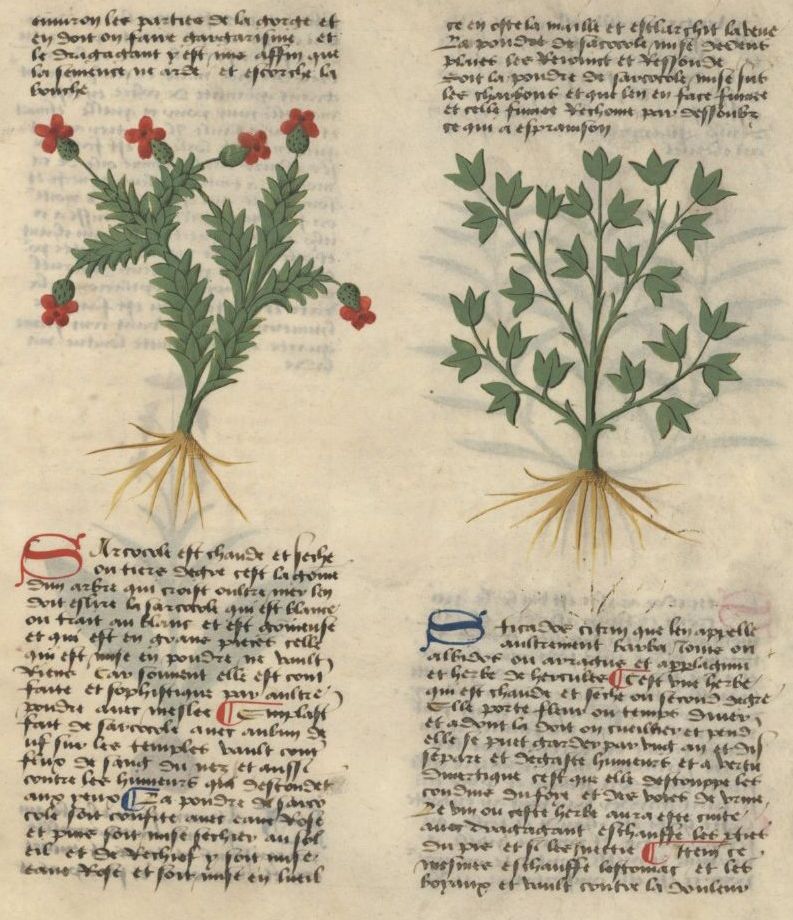 environ les parties de la gorge et
en doit on faire gargarisme et
le dragagant y est mis affin que
la semence ne arde et escorche la
bouche
Sarcocole est chaude et seiche
ou tiers degre cest la gome
dun arbre qui croist oultre mer len
doit eslire la sarcocole qui est blanche
ou trait au blanc et est gomeuse
et qui est en grans pieces celle
qui est mise en poudre ne vault
riens Car souvent elle est cont
faite et sophistique par aultre
poudre avec meslee Emplast
fait de sarcocole avec aubun de
uf sur les temples vault cont
feux de sang du nez et aussi
contre les humeurs qui descendet
aux yeux La poudre de sarco
cole soit confite avec eaue rose
et puis soit mise sechier au sol
eil et de rechief y soit mise
eaue rose et soit mise en lueil
ce en oste la maille et esclarchit la veue
La poudre de sarcocole mise dedent
plaies les rejoinct et ressoude
soit la poudre de sarcocole mise sur
les charbons et que len en face fumee
et celle fumee rechoive par dessoubz
ce qui a espramson
Sticados citrin que len appelle
aultrement barba Jouis ou
albides ou et
et herbe de hercules Cest une herbe
qui est chaude et seche ou second degre
Elle porte fleur ou temps diver
et adont la doit on cueillier et pend
elle se puet garder par ung an et dis
separe et degaste humeurs et a vertu
diuretique cest que elle destouppe les
conduis du foye et des voies de urine
Le vin ou ceste herbe aura este cuite
avec dragagant eschauffe les pties
du pis et si les nettie Item ce
mesmes eschauffe lestomac et les
boyaux et vault contre la douleur